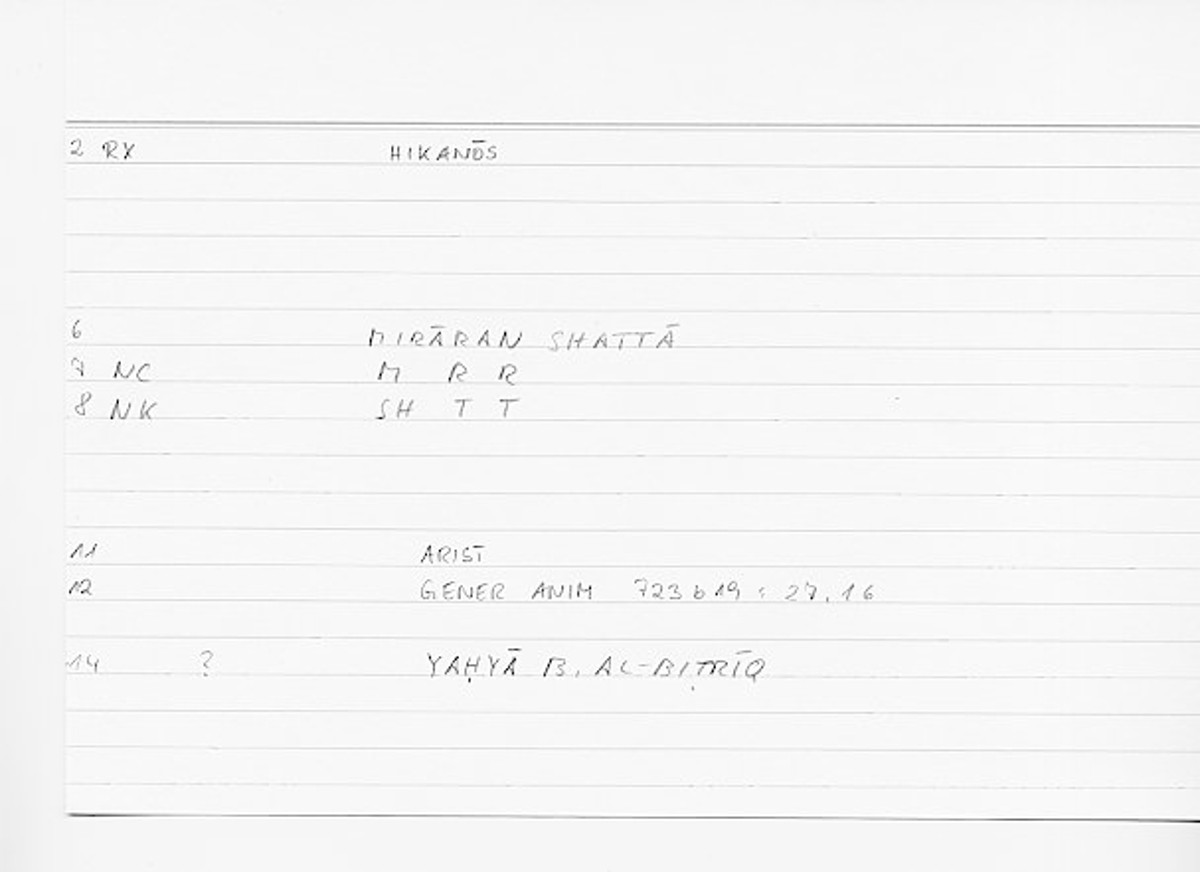 2 RX HIKANŌS
6 MIRĀRAN SHATTĀ
7 NC M R R
8 NK SH T T
11 ARIST
12 GENER ANIM 723 b 19 : 27, 16
14 ? YAḤYĀ B. AL-BIṬRĪQ